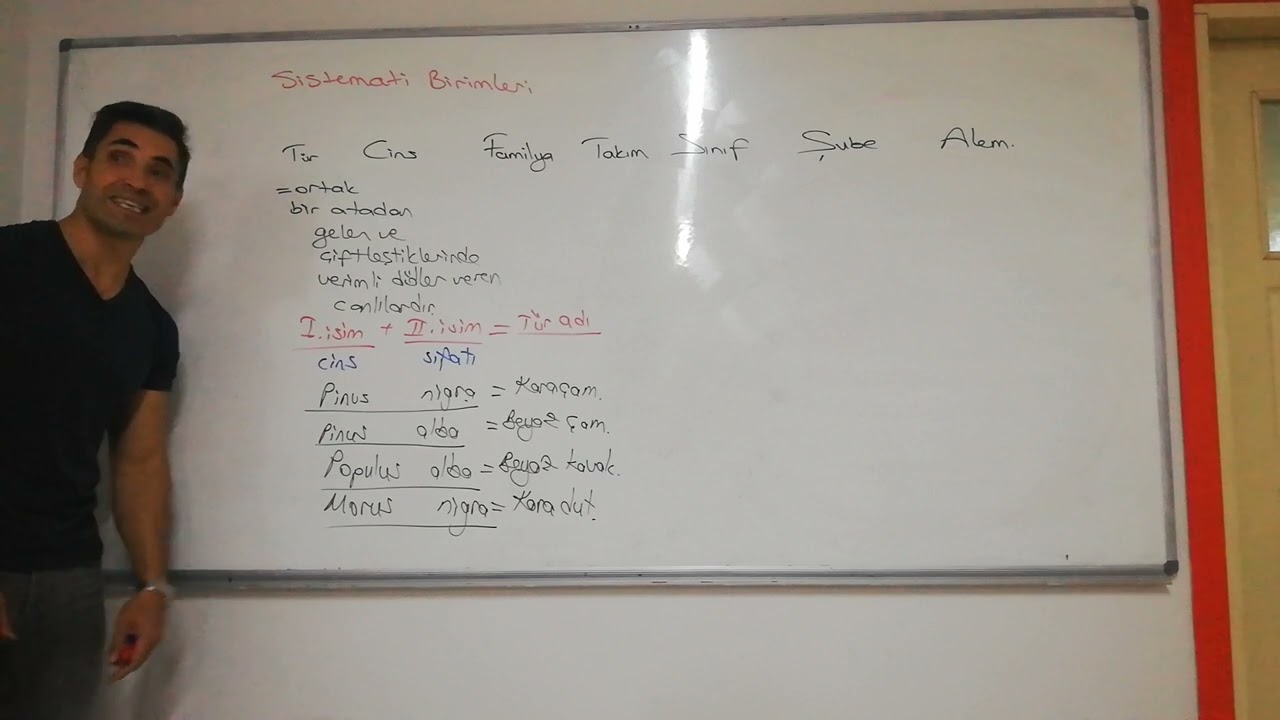 Sistemati Birimleri
Tür Cins Familya Takım Sınıf Şube Alem.
=ortak
bir atadan
gelen ve
çiftleştiklerinde
verimli döller veren
canlılardır.
I.isim + II.isim = Tür adı
cins sıfatı
Pinus nigra = Karaçam.
Pinus alba = Beyaz çam.
Populus alba = Beyaz kavak.
Morus nigra = Kara dut.